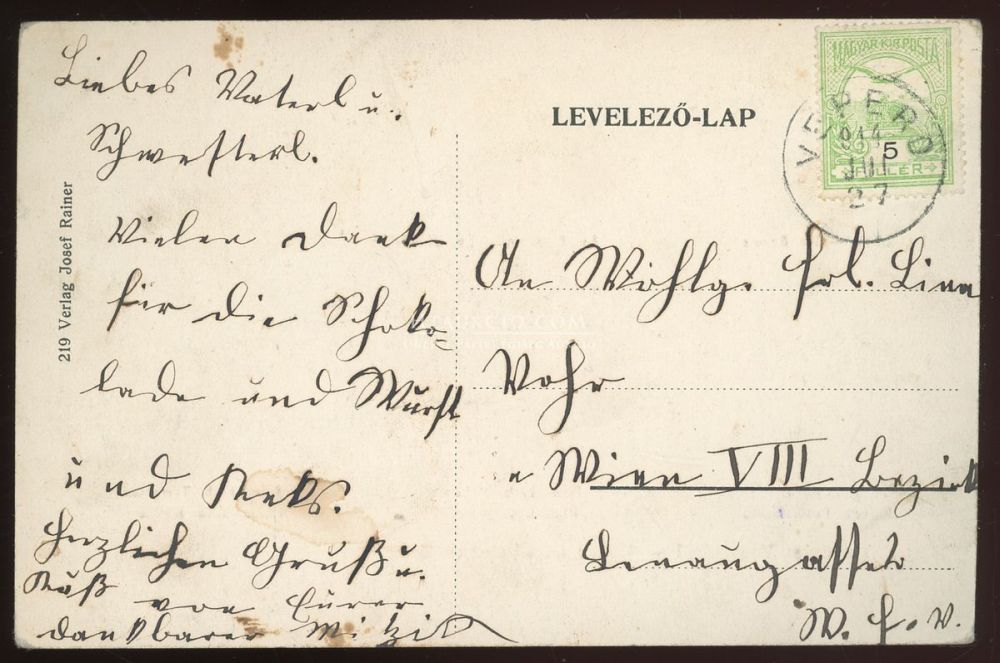 Liebes Vaterl u.
Schwesterl.
Vielen Dank
für die Schoko-
lade und Wurst
und Keks.
Herzlichen Gruß u.
Kuß von Eurer
dankbaren Mitzi
219 Verlag Josef Rainer
LEVELEZŐ-LAP
MAGYAR KIR. POSTA
5
FILLER
VEPERD
914
JUL
27
An Wohlg. Frl. Lina
Wien VIII Bezirk
Lenaugasse